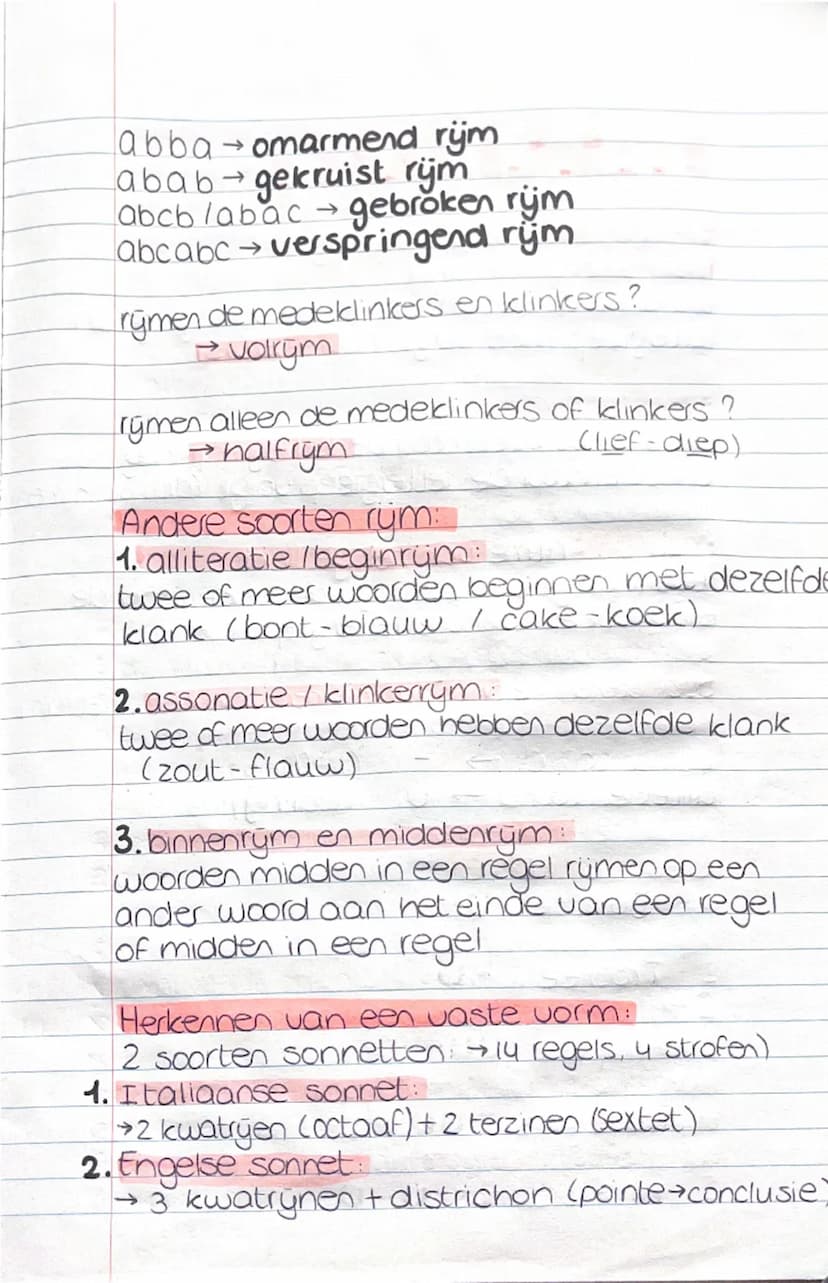 abba → omarmend rijm
abab → gekruist rijm
abcb / abac → gebroken rijm
abcabc → verspringend rijm
rijmen de medeklinkers en klinkers?
→ volrijm
rijmen alleen de medeklinkers of klinkers?
→ halfrijm (lief - diep)
Andere soorten rijm:
1. alliteratie / beginrijm:
twee of meer woorden beginnen met dezelfde
klank (bont - blauw / cake - koek)
2. assonatie / klinkerrijm:
twee of meer woorden hebben dezelfde klank
(zout - flauw)
3. binnenrijm en middenrijm:
woorden midden in een regel rijmen op een
ander woord aan het einde van een regel
of midden in een regel
Herkennen van een vaste vorm:
2 soorten sonnetten: → 14 regels, 4 strofen)
1. Italiaanse sonnet:
→ 2 kwatrijen (octaaf) + 2 terzinen (sextet)
2. Engelse sonnet:
→ 3 kwatrijnen + districhon (pointe → conclusie)